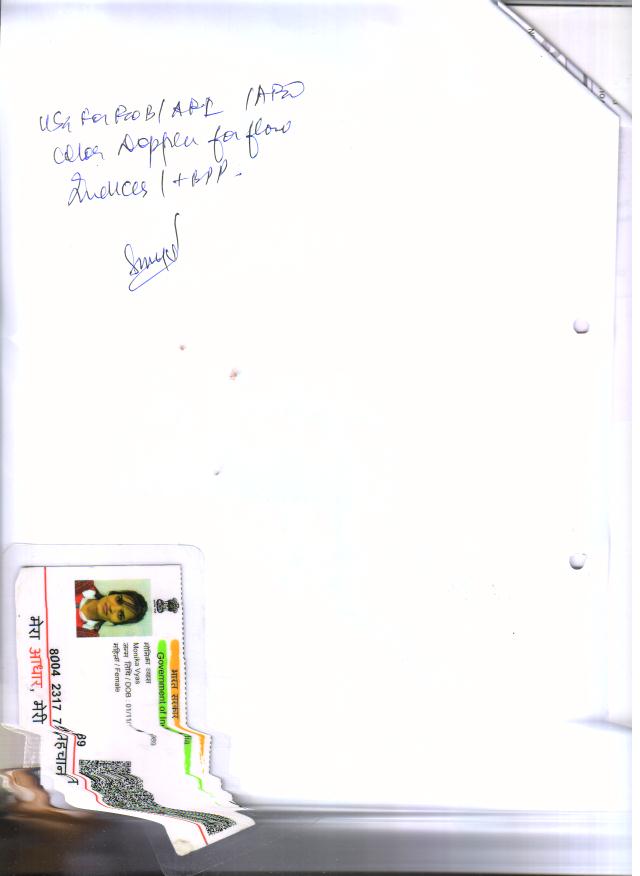 USG For
Color Doppler for flow
Indices / + BPP.
भारत सरकार
Government of India
मोनिका व्यास
Monika Vyas
जन्म तिथि / DOB : 01/11/
महिला / Female
8004 2317
मेरा आधार, मेरी पहचान